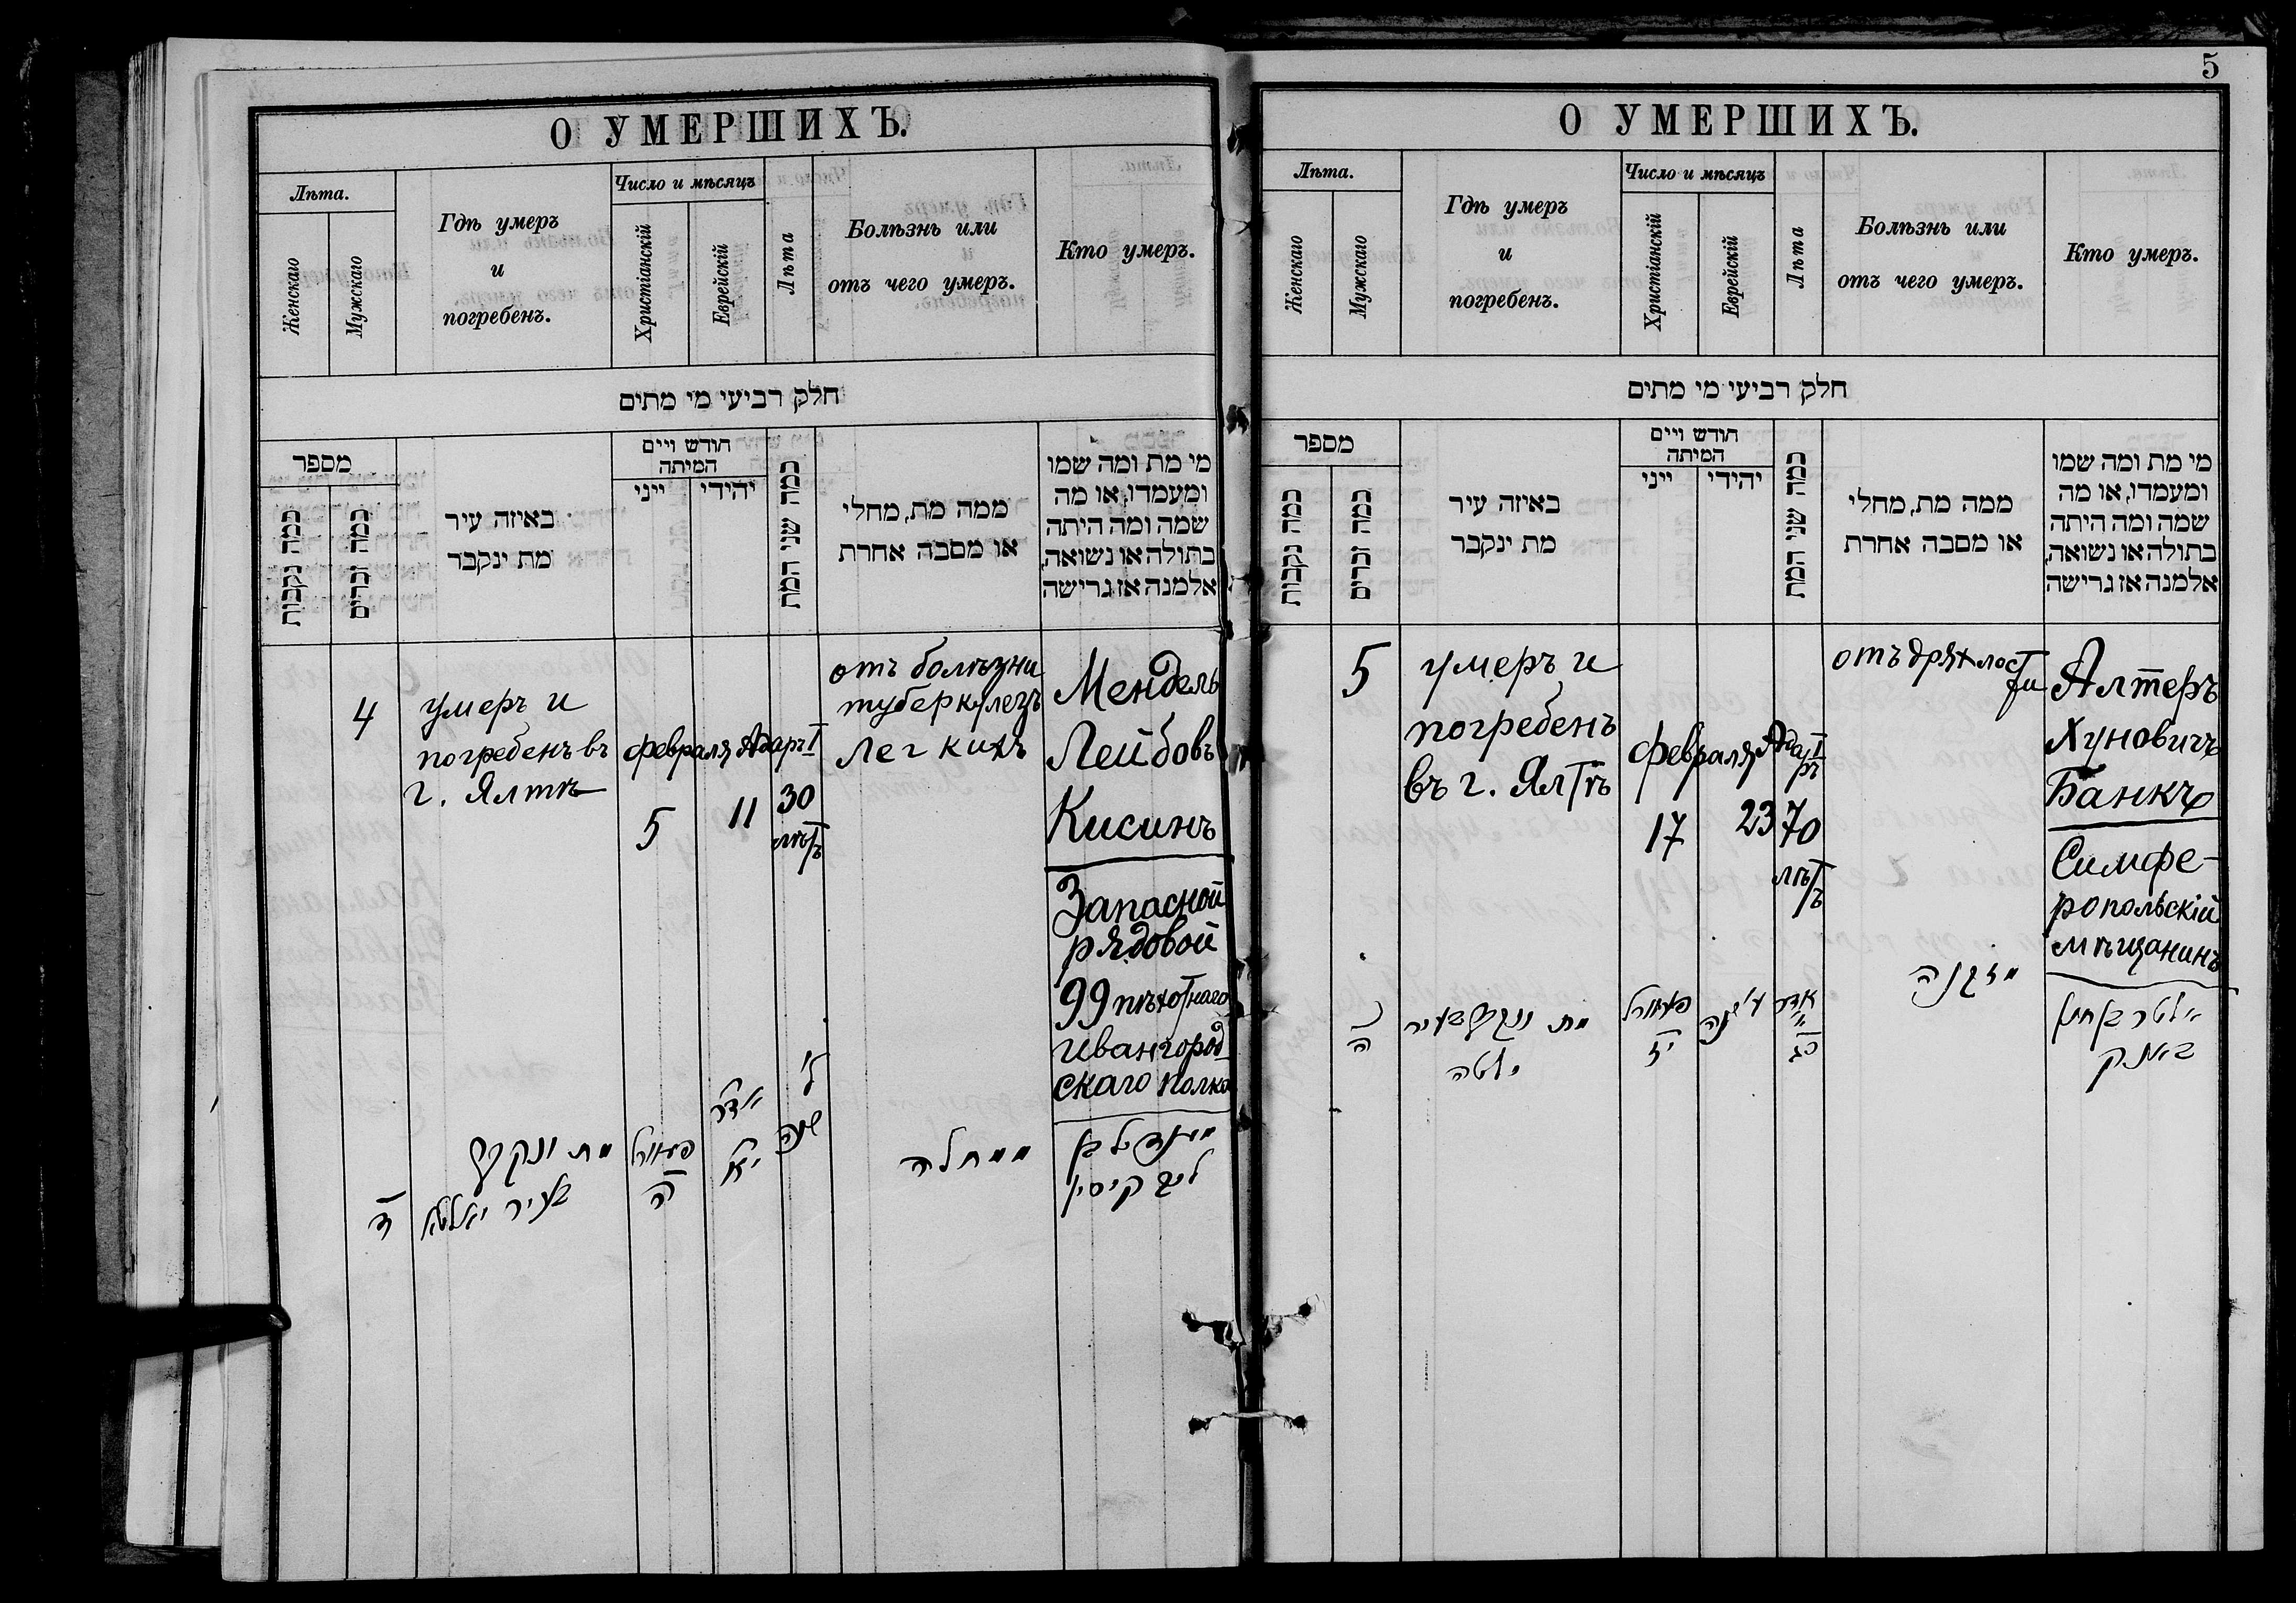 О УМЕРШИХЪ.
Лѣта.
Женскаго
Мужскаго
Гдѣ умеръ
и
погребенъ.
Число и мѣсяцъ
Христіанскій
Еврейскій
Лѣта
Болѣзнь или
отъ чего умеръ.
Кто умеръ.
חלק רביעי מי מתים
מספר
כמה נקבות
כמה זכרים
באיזה עיר
מת ינקבר
חודש ויים
המיתה
ייני
יהידי
כמה שני המת
ממה מת, מחלי
או מסבה אחרת
מי מת ומה שמו
ומעמדו, או מה
שמה ומה היתה
בתולה או נשואה,
אלמנה אז גרישה
4
умеръ и
погребенъ въ
г. Ялтѣ
февраля
5
Адаръ I
11
30
лѣтъ
отъ болѣзни
туберкулезъ
легкихъ
Мендель
Лейбовъ
Кисинъ
Запасной
рядовой
99 пѣхотнаго
Ивангород
скаго полка
ד
מת ונקבר
בעיר יאלטא
ה
אדר
יא
ל
שנה
ממחלה
מענדיל בן
ליב קיסין
5
О УМЕРШИХЪ.
Лѣта.
Женскаго
Мужскаго
Гдѣ умеръ
и
погребенъ.
Число и мѣсяцъ
Христіанскій
Еврейскій
Лѣта
Болѣзнь или
отъ чего умеръ.
Кто умеръ.
חלק רביעי מי מתים
מספר
כמה נקבות
כמה זכרים
באיזה עיר
מת ינקבר
חודש ויים
המיתה
ייני
יהידי
כמה שני המת
ממה מת, מחלי
או מסבה אחרת
מי מת ומה שמו
ומעמדו, או מה
שמה ומה היתה
בתולה או נשואה,
אלמנה אז גרישה
5
умеръ и
погребенъ
въ г. Ялтѣ
февраля
17
Адаръ I
23
70
лѣтъ
отъ дряхлости
Алтеръ
Хуновичъ
Банкъ
Симфе-
ропольскій
мѣщанинъ
ה
מת ונקבר בעיר
ילטה
יז
ע' שנה
אדר
א'
כג
מזקנה
אלטר בן חונן
באנק